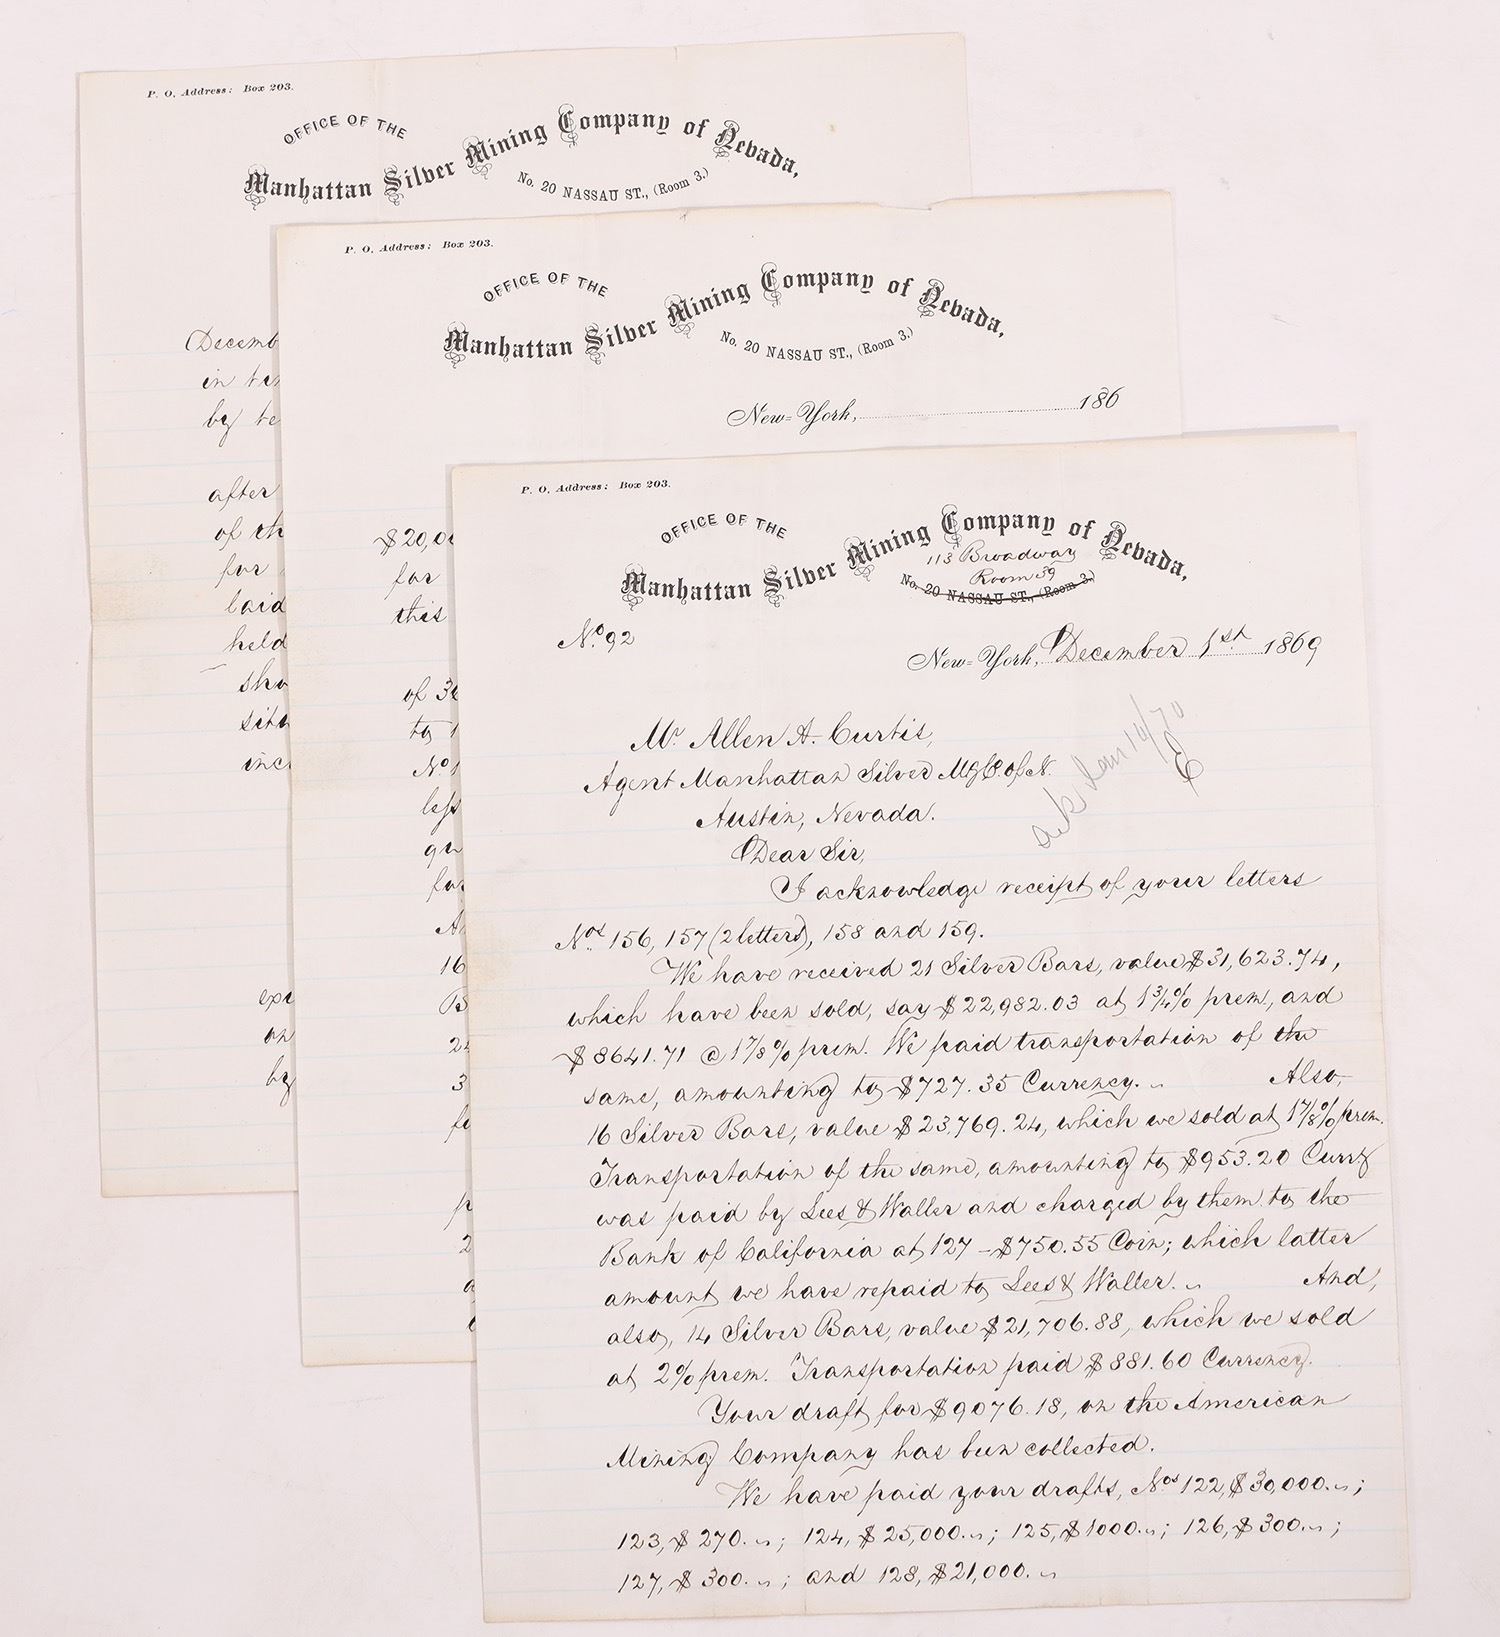 P. O. Address: Box 203.
OFFICE OF THE
Manhattan Silver Mining Company of Nevada,
No. 20 NASSAU ST., (Room 3.)
Decemb
in
by te
after
of th
for
laid
held
sho
situ
inc
exp
on
by
P. O. Address: Box 203.
OFFICE OF THE
Manhattan Silver Mining Company of Nevada,
No. 20 NASSAU ST., (Room 3.)
New-York, 186
$20,00
for
this
of 3
to 1
No 1
less
qu
for
A
16
B
2
3
f
p
2
a
P. O. Address: Box 203.
OFFICE OF THE
Manhattan Silver Mining Company of Nevada,
113 Broadway
Room 39
No. 20 NASSAU ST., (Room 3.)
No. 92
New-York, December 1st 1869
Mr Allen A. Curtis,
Agent Manhattan Silver Mg Co. of N.
Austin, Nevada.
ack Jan 14/70
C
Dear Sir,
I acknowledge receipt of your letters
Nos. 156, 157 (2 letters), 158 and 159.
We have received 21 Silver Bars, value $31,623.74,
which have been sold, say $22,982.03 at 1 3/4% prem, and
$8641.71 @ 1 7/8% prem. We paid transportation of the
same, amounting to $727.35 Currency. Also,
16 Silver Bars, value $23,769.24, which we sold at 1 7/8% prem.
Transportation of the same, amounting to $953.20 Curry
was paid by Lees & Waller and charged by them to the
Bank of California at 127 - $750.55 Coin; which latter
amount we have repaid to Lees & Waller. And,
also, 14 Silver Bars, value $21,706.88, which we sold
at 2% prem. Transportation paid $881.60 Currency.
Your draft for $9076.18, on the American
Mining Company has been collected.
We have paid your drafts, Nos 122, $30,000. ;
123, $270. ; 124, $25,000. ; 125, $1000. ; 126, $300. ;
127, $300. ; and 128, $21,000.